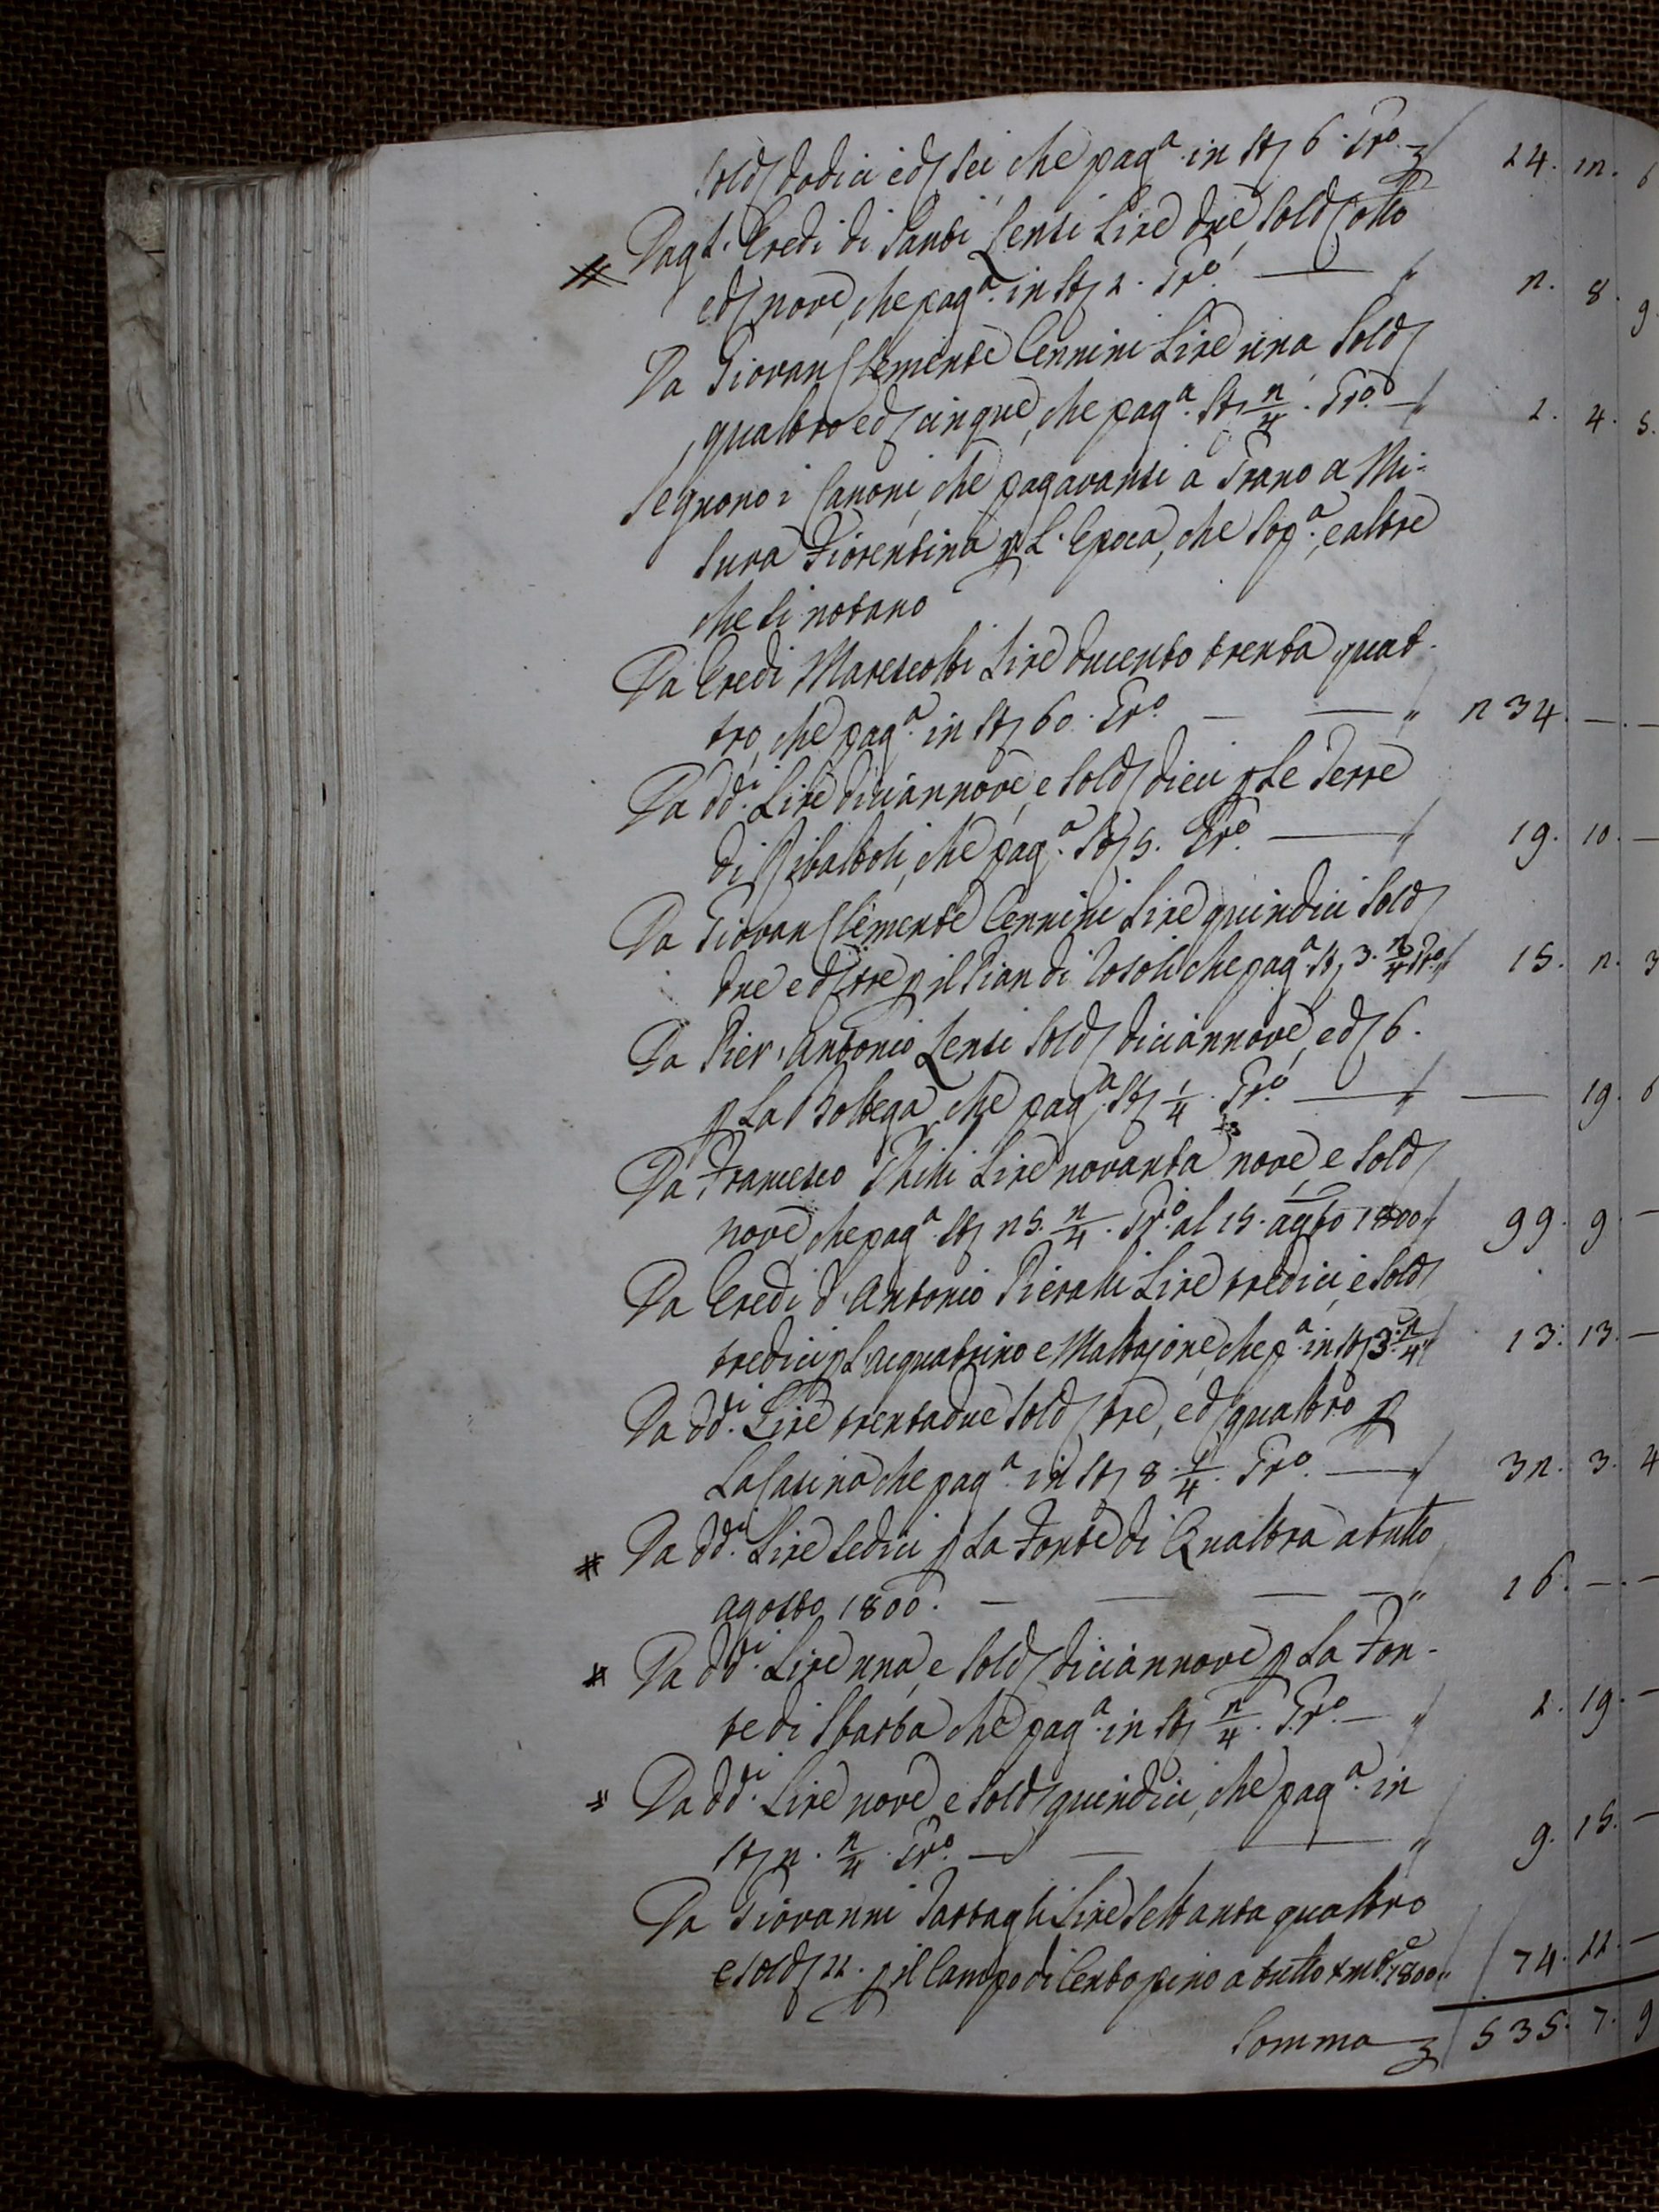 Sold dodici e d sei che pagª. in St 6. Grº. 14. 12. 6
Dagl' Eredi di Santi Lensi Lire due, Sold otto
e d nove, che pagª. in St 1. Grº. — " 2. 8. 9.
Da Giovan Clemente Cennini Lire una Sold
quattro e d cinque, che pagª. St 2/4. Grº. — " 1. 4. 5.
Seguono i Canoni, che pagavansi a Grano a Mi-
sura Fiorentina p L'Epoca, che Sopª., e altre
che si notano
Da Eredi Marescotti Lire ducento trenta quat-
tro, che pagª. in St 60. Grº. — — " 234. —. —
Da ddⁱ. Lire diciannove, e Sold dieci p Le Terre
di Ribattoli, che pagª. St 5. Grº. — " 19. 10. —
Da Giovan Clemente Cennini Lire quindici Sold
due e d tre p il Pian di Cosoli che pagª. St 3. 2/4 Grº. " 15. 2. 3
Da Pier' Antonio Lensi Sold diciannove, e d 6.
p La Bottega, che pagª. St 1/4. Grº. — " — 19. 6
Da Francesco Lire novanta nove, e Sold
nove, che pagª. St 25. 2/4. Grº. al 15. agto 1800 " 99. 9. —
Da Eredi d'Antonio Pieralli Lire tredici, e Sold
tredici p L'acquatrino e Mattajone, che pª. in St 3. 2/4 " 13. 13. —
Da ddⁱ. Lire trentadue Sold tre, e d quattro p
La Casina che pagª. in St 8. 1/4. Grº. — " 32. 3. 4
Da ddⁱ. Lire sedici p La Fonte di Qualtra a tutto
agosto 1800. — — — — " 16. —. —
Da ddⁱ. Lire una, e Sold diciannove p La Fon-
te di Sbarba che pagª. in St 2/4. Grº. — " 1. 19. —
Da ddⁱ. Lire nove, e Sold quindici, che pagª. in
St 2. 2/4. Grº. — — — " 9. 15. —
Da Giovanni Lire Settanta quattro
e Sold 11. p il Campo di Centopino a tutto 1800 " 74. 11. —
Somma 535. 7. 9